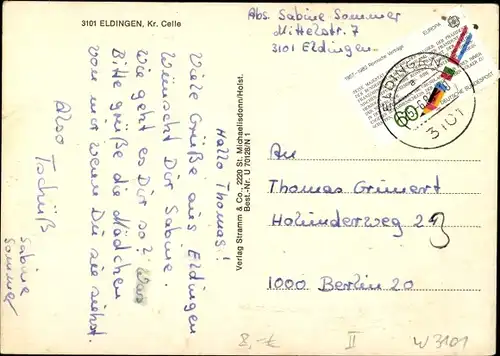 3101 ELDINGEN, Kr. Celle
Abs. Sabine Sommer
Mittelstr. 7
3101 Eldingen
EUROPA
1957-1982 Römische Verträge
DEUTSCHE BUNDESPOST
60
ELDINGEN
3101
Hallo Thomas!
Viele Grüße aus Eldingen
Wünscht Dir Sabine.
Wie geht es Dir so?
Bitte grüße die Mädchen
von mir wenn Du sie siehst.
Also Tschüß
Sabine
Sommer
Verlag Stramm & Co., 2220 St. Michaelisdonn/Holst.
Best.-Nr. U 70128/N
An
Thomas Grunert
23
1000 Berlin 20
8,-
II
W 3101